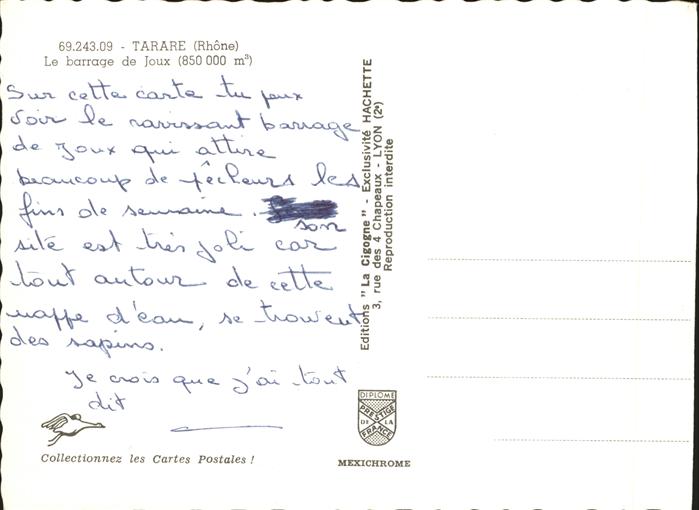 69.243.09 - TARARE (Rhône)
Le barrage de Joux (850 000 m³)
Sur cette carte tu peux
voir le ravissant barrage
de Joux qui attire
beaucoup de pêcheurs les
fins de semaine.
son
site est très joli car
tout autour de cette
nappe d'eau, se trouvent
des sapins.
Je crois que j'ai tout
dit
Collectionnez les Cartes Postales !
Editions "La Cigogne" - Exclusivité HACHETTE
3, rue des 4 Chapeaux - LYON (2e)
Reproduction interdite
DIPLOME
PRESTIGE
DE LA
FRANCE
MEXICHROME